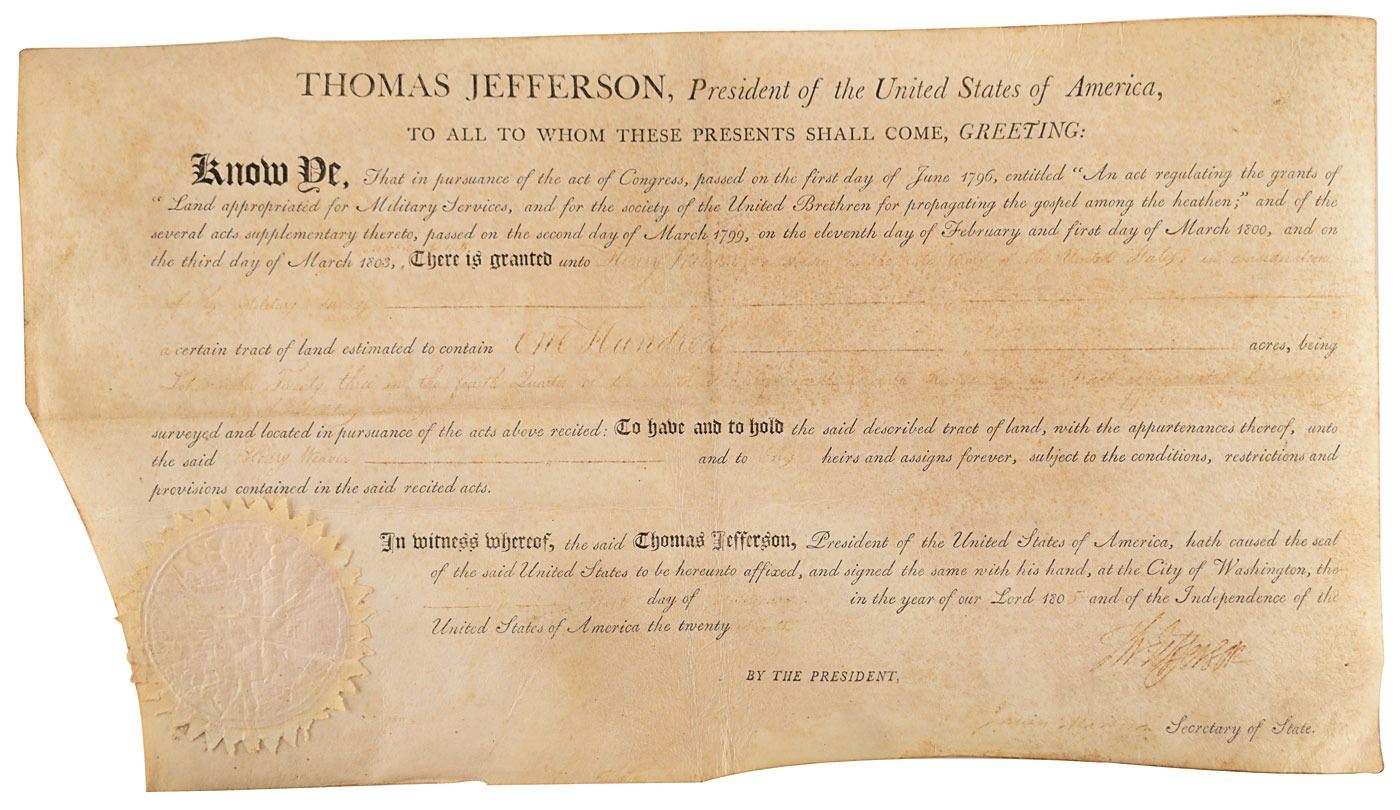 THOMAS JEFFERSON, President of the United States of America,
TO ALL TO WHOM THESE PRESENTS SHALL COME, GREETING:
Know Ye, That in pursuance of the act of Congress, passed on the first day of June 1796, entitled "An act regulating the grants of
" Land appropriated for Military Services, and for the society of the United Brethren for propagating the gospel among the heathen;" and of the
several acts supplementary thereto, passed on the second day of March 1799, on the eleventh day of February and first day of March 1800, and on
the third day of March 1803, There is granted unto Henry Weaver of the United States in consideration
of his military
a certain tract of land estimated to contain One Hundred acres, being
Lot Twenty three in the fourth Quarter of the
surveyed and located in pursuance of the acts above recited: To have and to hold the said described tract of land, with the appurtenances thereof, unto
the said Henry Weaver and to his heirs and assigns forever, subject to the conditions, restrictions and
provisions contained in the said recited acts.
In witness whereof, the said Thomas Jefferson, President of the United States of America, hath caused the seal
of the said United States to be hereunto affixed, and signed the same with his hand, at the City of Washington, the
day of in the year of our Lord 1805 and of the Independence of the
United States of America the twenty
Th Jefferson
BY THE PRESIDENT,
James Madison Secretary of State.